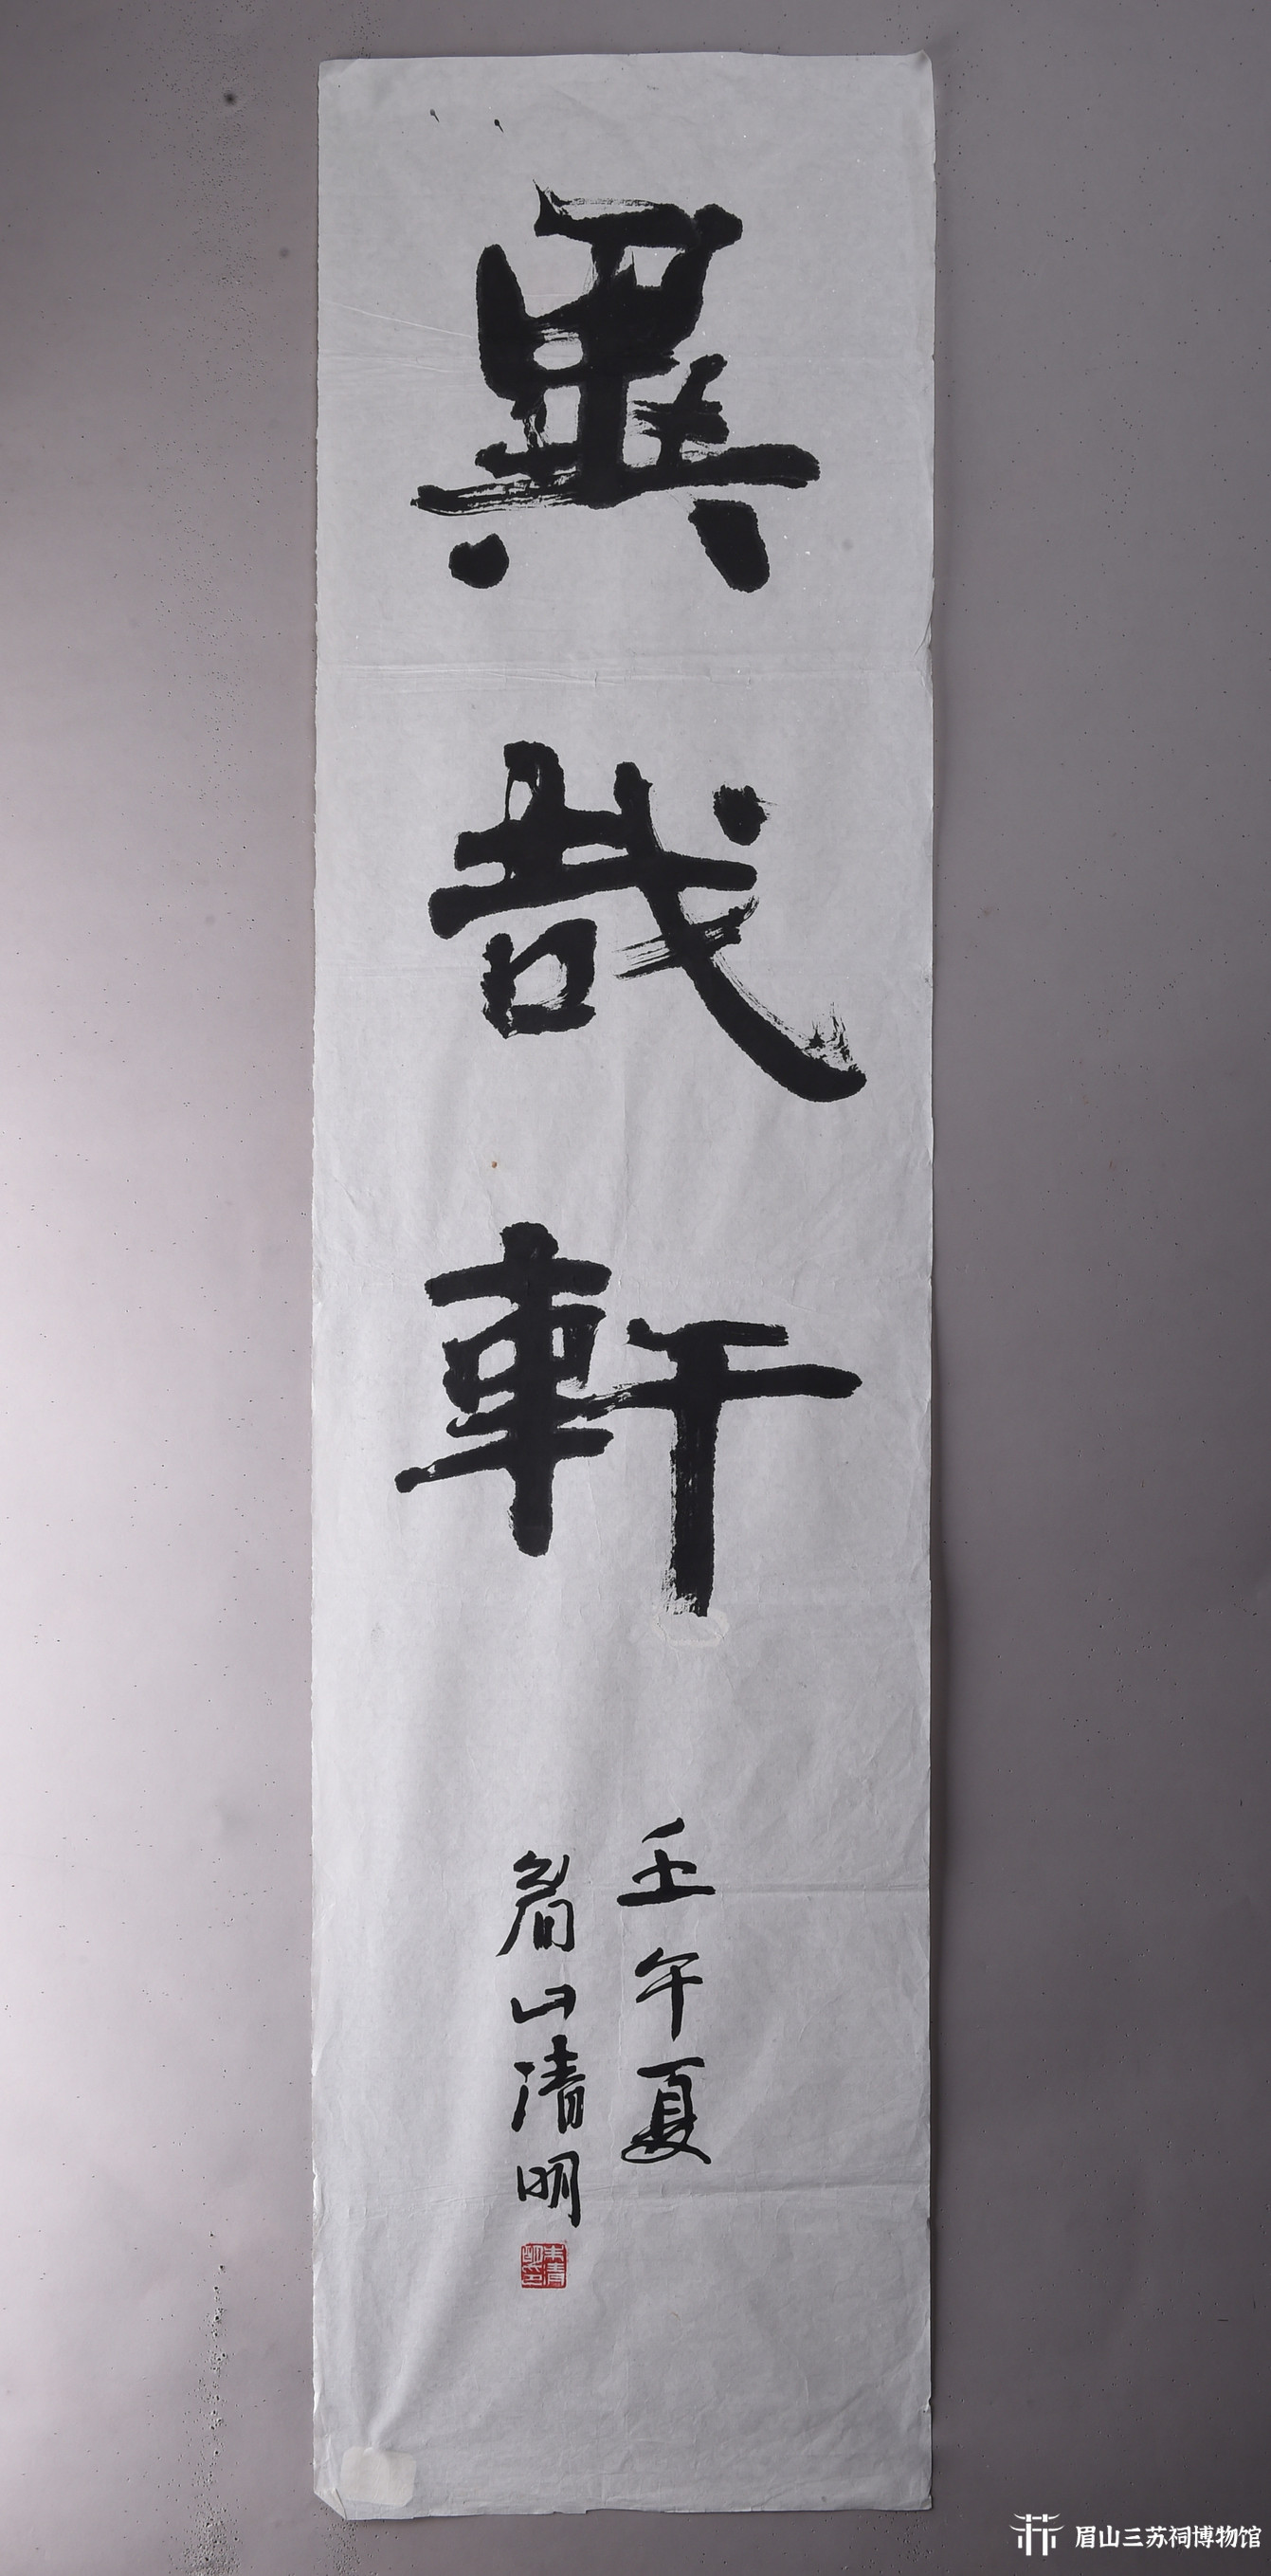 異哉軒
壬午夏
眉山清明
朱清明印
眉山三苏祠博物馆